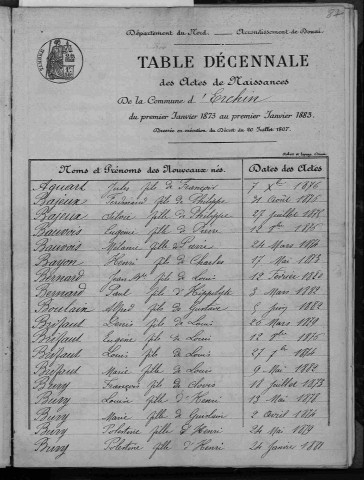 Département du Nord. Arrondissement de Douai.
TABLE DÉCENNALE
des Actes de Naissances
De la Commune d'Erchin
du premier Janvier 1873 au premier Janvier 1883.
Dressée en exécution du Décret du 20 Juillet 1807.
Noms et Prénoms des Nouveaux nés. Dates des Actes
Aquart Jules fils de François 7 Xbre 1876
Bajeux Ferdinand fils de Philippe 31 Août 1875
Bajeux fille de Philippe 27 Juillet
Bauvois Eugénie fille de Pierre 1875
Bauvois Mélanie fille de Pierre 24 Mars
Bayon Henri fils de Charles 17 Mai 1873
Bernard Jean Bte fils de Louis 12 Février 1882
Bernard Paul fils d'Hippolyte 3 Mars 1882
Boulain Alfred fils de Gustave 5 Juin 1882
Bréfaut Denis fils de Louis 26 Mars 1879
Bréfaut Eugène fils de Louis
Bréfaut Louis fils de Louis 27 7bre 1874
Bréfaut Marie fille de Louis 9 Mai 1882
Bury François fils de Clovis 18 Juillet 1873
Bury Louise fille d'Henri 13 Mai 1876
Bury Marie fille de 2 Avril 1874
Bury fille d'Henri 24 Mai 1879
Bury fille d'Henri 24 Janvier 1881